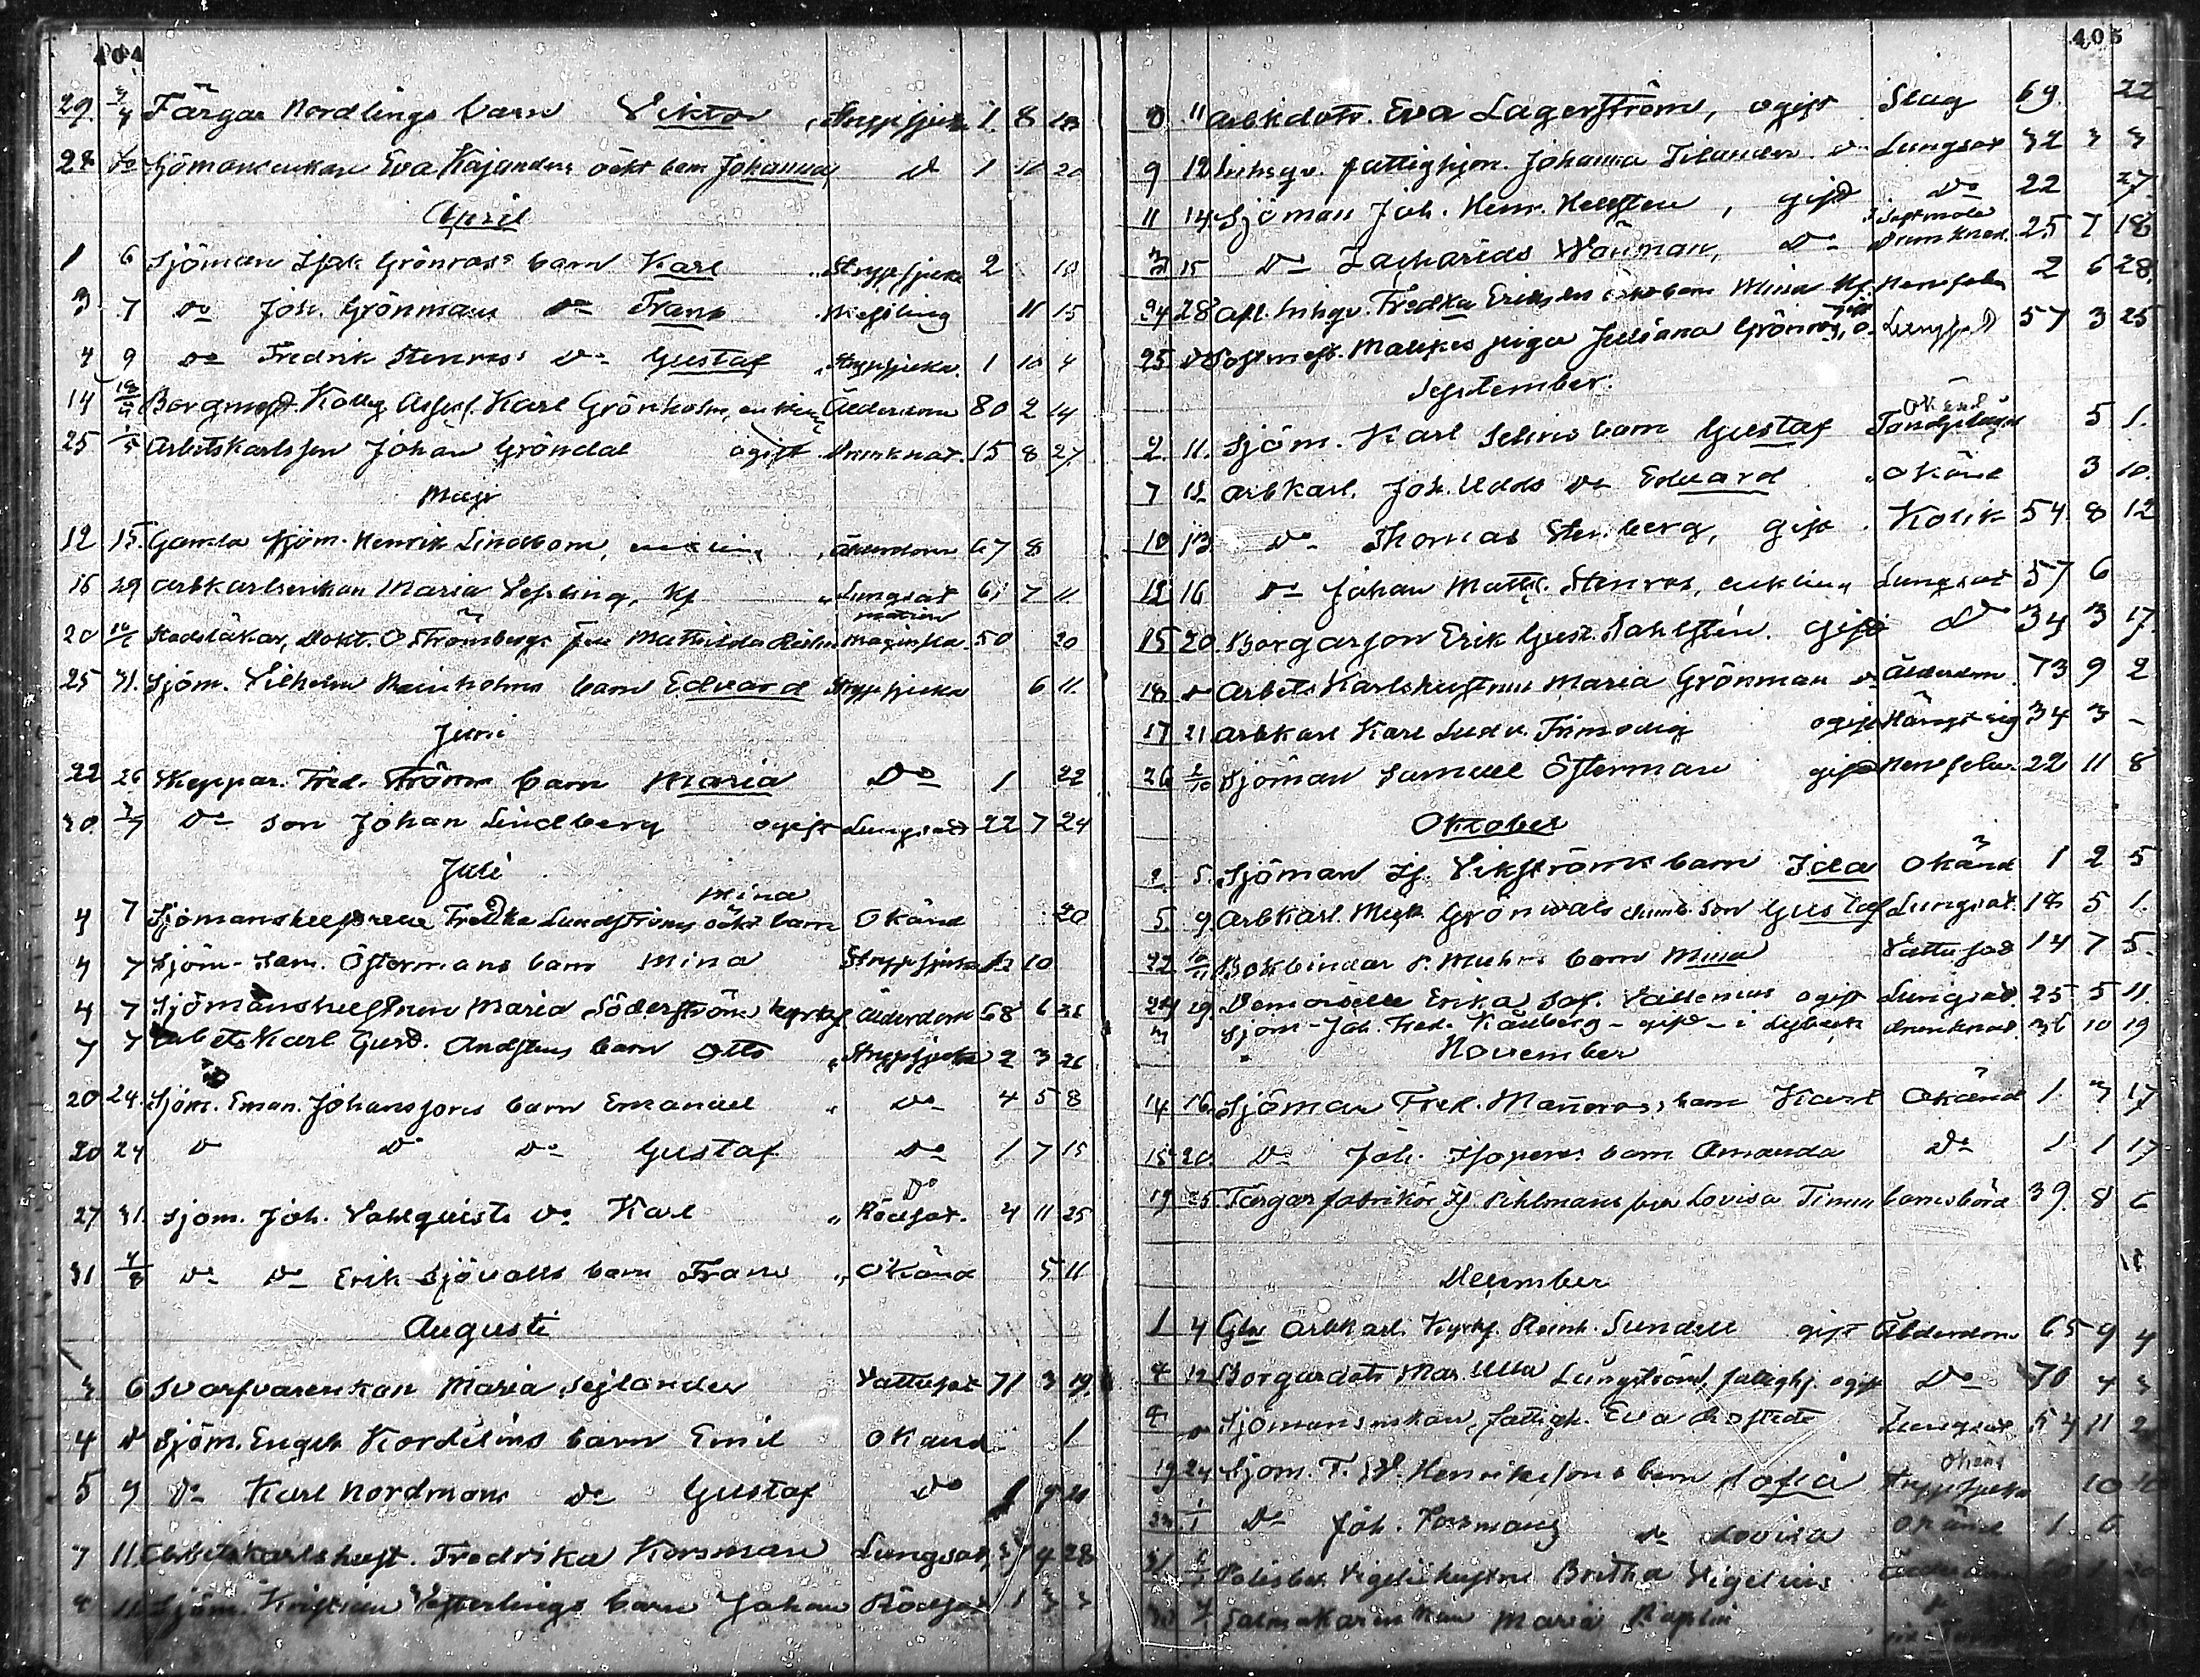 404
29. 3/4 Färgar Nordlings barn Viktor, Strypsjuka 1. 8 18
28 Do Sjömansenkan Eva Kajanders oäkt barn Johanna, Do 1 11 20
April
1 6 Sjöman Isak Grönroos' barn Karl Strypsjuka 2 10
3 7 Do Joh. Grönmans Do Frans 11 15
4 9 Do Fredrik Stenroos' Do Gustaf Strypsjuka. 1 10 4
14 Borgmest. Kolleg. Assess. Karl Grönholm, enkling Ålderdom 80 2 14
25 1/5 Arbetskarlsson Johan Gröndal ogift Drunknat. 15 8 27
Maji
12 15. Gamla sjöm. Henrik Lindbom, enkling Ålderdom 67 8
16 29 Arbkarlsenkan Maria Lessling, Lungsot 61 7 11
20 Stadsläkar, Dokt. O. Strömbergs fru Mathilda 50 20
25 31. Sjöm. Vilhelm Reinholms barn Edvard Strypsjuka 6 11.
Juni
22 26 Skeppar. Fred. Ströms barn Maria Do 1 22
30 3/7 Do son Johan Lindberg ogift Lungsot 22 7 24
Juli
4 7 Sjömanshustrun Fredrika Lundströms oäkt barn Mina Okänd 20
4 7 Sjöm. Sam. Östermans barn Mina Strypsjuka 10
4 7 Sjömanshustrun Maria Söderström Ålderdom 68 6
7 7 Arbetskarl Gust. Andstens barn Otto Strypsjuka 2 3 26
20 24. Sjöm. Eman. Johanssons barn Emanuel " Do 4 5 8
20 24 D D Do Gustaf Do 1 7 15
27 31. Sjöm. Joh. Vahlquists Do Karl " Do Rödsot. 4 11 25
31 4/8 Do Do Erik Sjövalls barn Frans " Okänd 5 11
Augusti
3 6 Svarfvarenkan Maria Sejlander Vattusot 71 3 19.
4 D Sjöm. Engelb. Kordelins barn Emil Okänd 1
5 9 Do Karl Nordmans Do Gustaf Do 1 9
7 11. Arbetskarlshust. Fredrika Korsman Lungsot, 4 28
11 Sjöm. Kristian Vesterlings barn Johan Rödsot 1 3 3
405
8 11 Arbkdotr. Eva Lagerström, ogift Slag 69. 22
9 12 Inhsqv. fattighjon. Johanna Tilander Do Lungsot 32 3 3
11 14 Sjöman Joh. Henr. Hellsten, gift Do 22 27
15 Do Zacharias Wanman, Do Drunknat. 25 7 18
24 28 afl. Inhqv. Fredka barn Mina 2 6 28
25. D Postmäst. piga Juliana Grönroos, Lungsot 57 3 25
September.
2. 11. Sjöm. Karl Selins barn Gustaf Okänd Tandslag 5 1.
7 12 Arbkarl. Joh. Udds Do Edvard " Okänd 3 10.
10 13 Do Thomas Stenberg, gift Kolik 54 8 12
12 16 Do Johan Matts. Stenroos, enkling Lungsot 57 6
15 20. Borgarson Erik Gust. Dahlstén. gift Do 34 3 17.
18 D Arbets Karlshustrun Maria Grönman Do Ålderdom. 73 9 2
17 21 Arbkarl Karl Ludv. Frimodig ogift Hängt sig 34 3 -
26 2/10 Sjöman Samuel Österman gift 22 11 8
Oktober
2. 5. Sjöman Is. Vikströms barn Ida Okänd 1 2 5
5. 9. Arbkarl. Mich. Grönwals dumb. son Gustaf Lungsot. 18 5 1.
22 Bokbindar barn Mina Vattusot 14 7 5.
24 29. Demoiselle Erika Sof. Vallenius ogift Lungsot. 25 5 11.
3 Sjöm. Joh. Fred. Källberg - gift - i Lybeck Drunknat. 36 10 19
November
14 16. Sjöman Fred. Manroos, barn Karl Okänd 1. 3 17
15 20. Do Joh. barn Amanda Do 1 1 17
19 25. Färgarfabrikör Is. Pihlmans fru Lovisa Timm barnsbörd 39. 8 6
December
1 4 Gla Arbkarl. Kyrkf. Reinh. Sundell gift Ålderdom 65 9 4
4 12 Borgardotr Mar. Ulla Ljungström, fattighj. ogift Do 70 4 3
4 D Sjömansenkan, fattigh. Eva Lungsot. 54 11 2
19 24 Sjöm. F. W. Henrikssons barn Sofia Okänd Strypsjuka 10 10
23 1/1 Do Joh. Forsmans Do Lovisa Okänd 1 6
31 hustru Britha Vigelius
Salmakarenkan Maria Kaplin